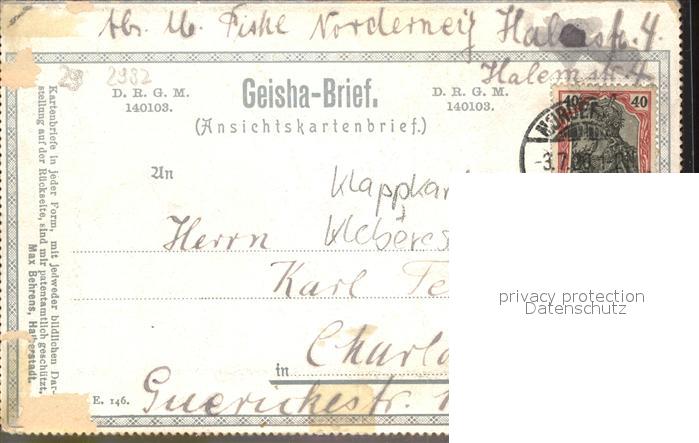 Abs. M. Fiske Norderney Halemstr. 4.
Halemstr. 4
29 2982
D. R. G. M.
140103.
Geisha-Brief.
D. R. G. M.
140103.
(Ansichtskartenbrief.)
40 40
NORDER
-3.7.
An
Klappkar
Klebéres
Herrn
Karl Te
in Charlo
Guerickestr. 1
E. 146.
Kartenbriefe in jeder Form, mit jedweder bildlichen Dar-
stellung auf der Rückseite, sind mir patentamtlich geschützt.
Max Behrens, Halberstadt.
privacy protection
Datenschutz